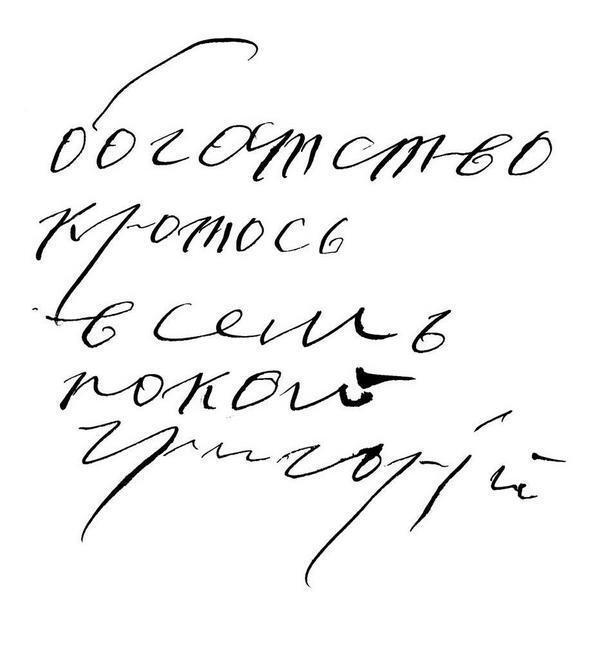 богатство
кротось
всемь
покой
григорій